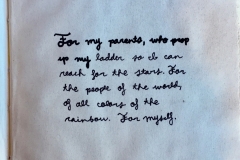 For my parents, who prop
up my ladder so I can
reach for the stars. For
the people of the world,
of all colors of the
rainbow. For myself.